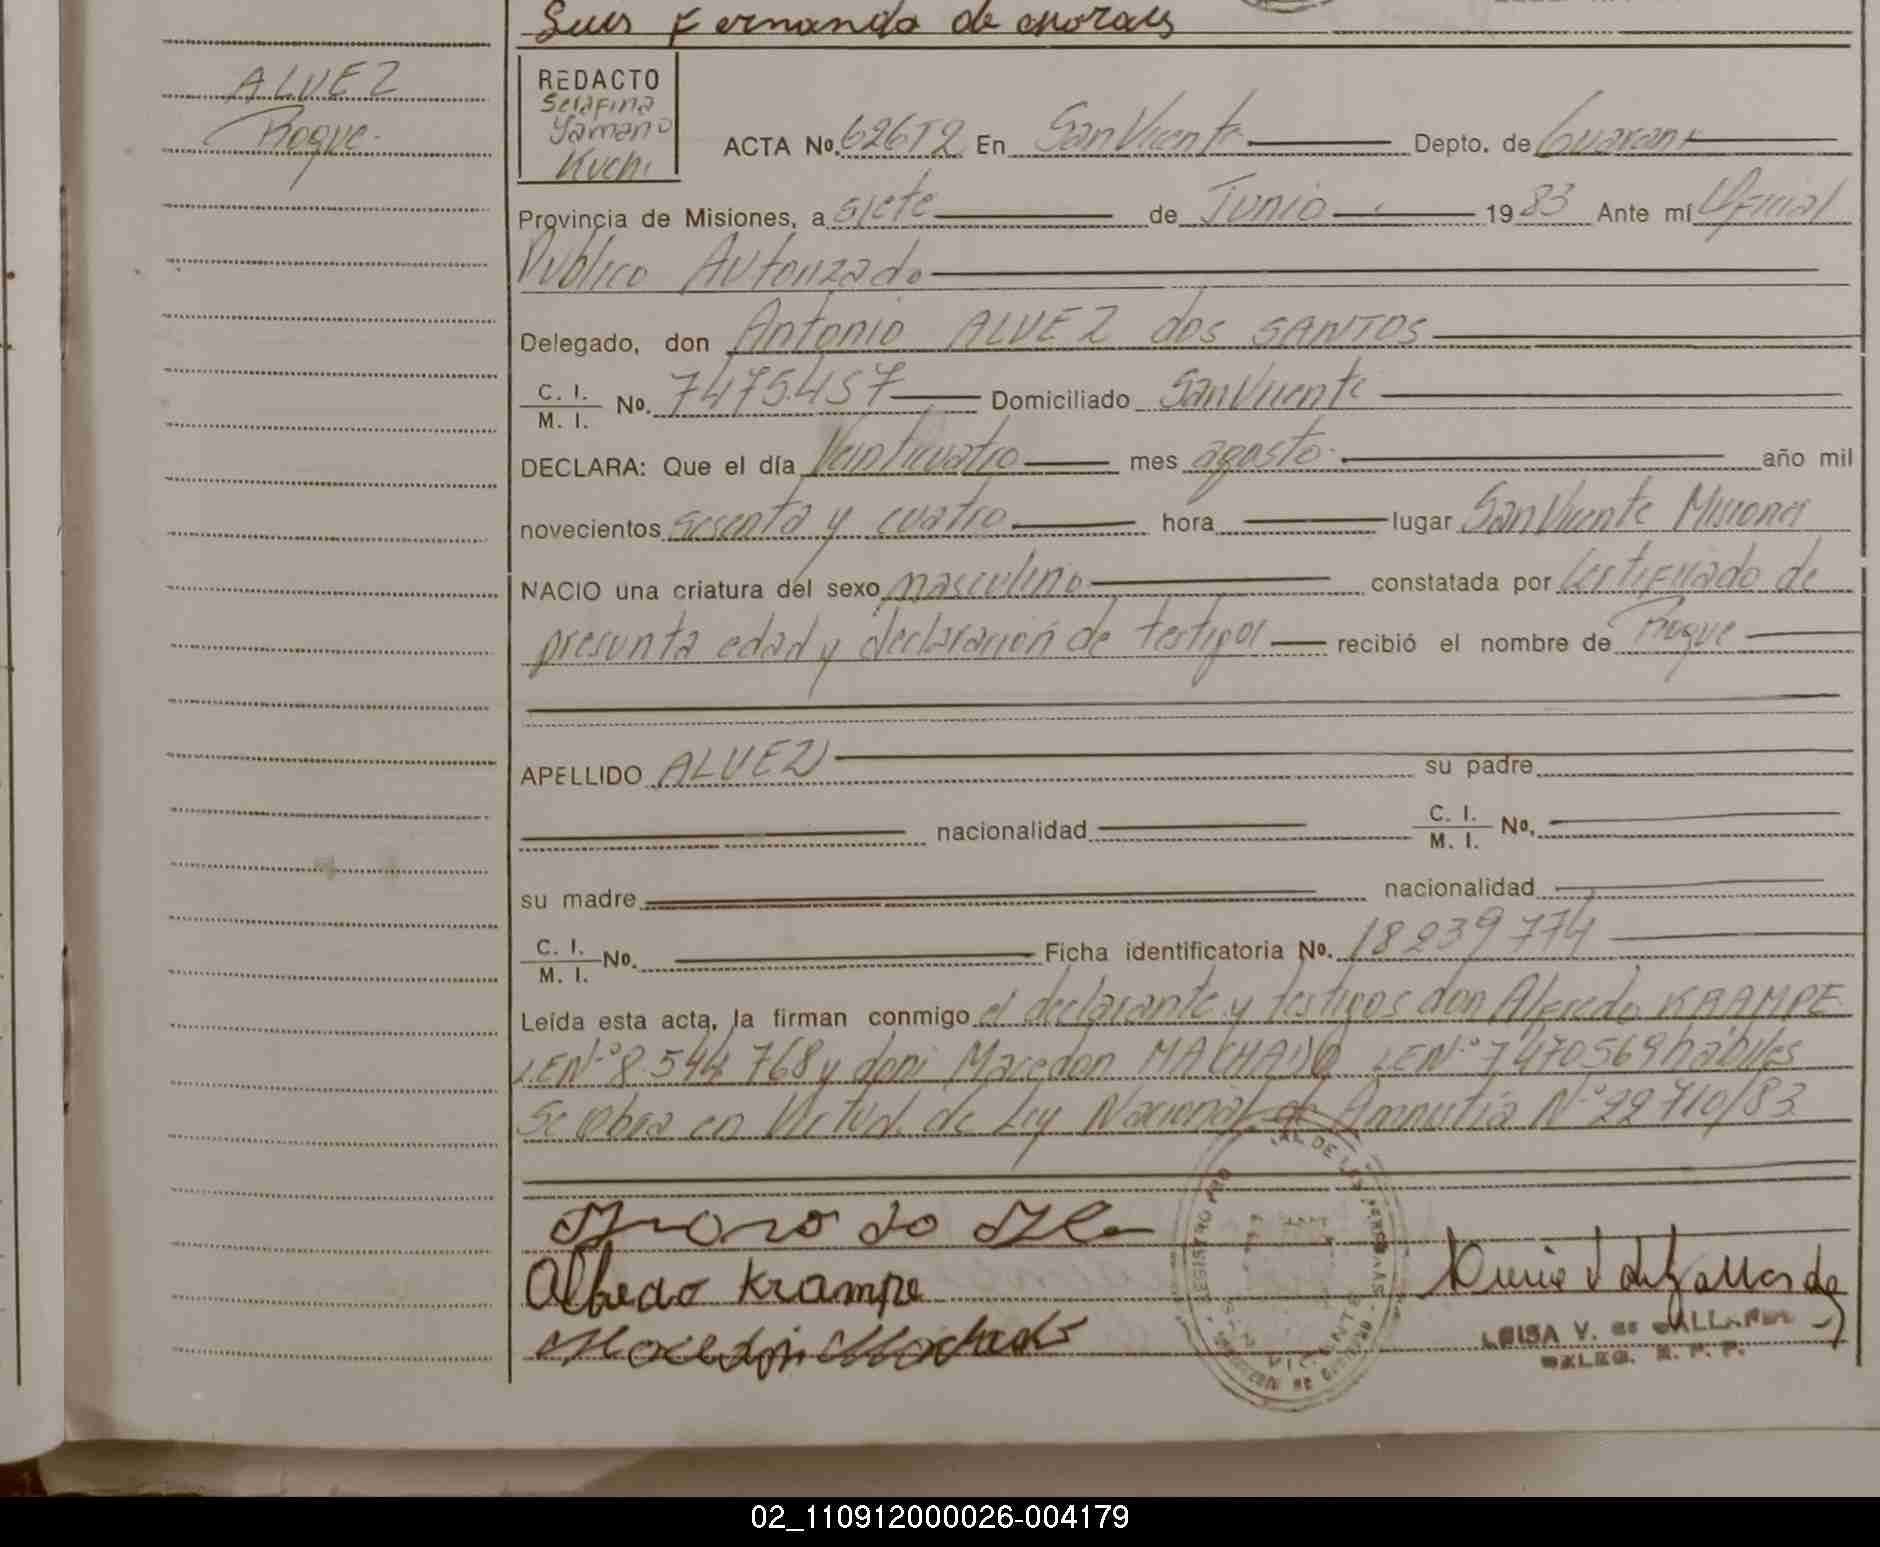 Luis Fernando de Morais
ALVEZ
Roque.
REDACTO
Serafina
Yamano
Kuchi
ACTA No. 626T2 En San Vicente Depto. de Guarani
Provincia de Misiones, a siete de Junio 1983 Ante mí Oficial
Publico Autorizado
Delegado, don Antonio ALVEZ dos SANTOS
C. I.
M. I. No. 7475.457 Domiciliado San Vicente
DECLARA: Que el día Veinticuatro mes agosto. año mil
novecientos sesenta y cuatro hora lugar San Vicente Misiones
NACIO una criatura del sexo masculino constatada por Certificado de
presunta edad y declaración de testigos recibió el nombre de Roque
APELLIDO ALVEZ su padre
nacionalidad C. I.
M. I. No.
su madre nacionalidad
C. I.
M. I. No. Ficha identificatoria No. 18239774
Leída esta acta, la firman conmigo el declarante y testigos don Alfredo KRAMPE
LEN-º8.544.768 y don Macedon MACHADO LEN-º7470569 hábiles
Se labra en Virtud de Ley Nacional de Amnistia N-º22710/83
Alfredo Krampe
Macedon Machado
LUISA V. de GALLARDO
DELEG. R. P. P.
02_110912000026-004179